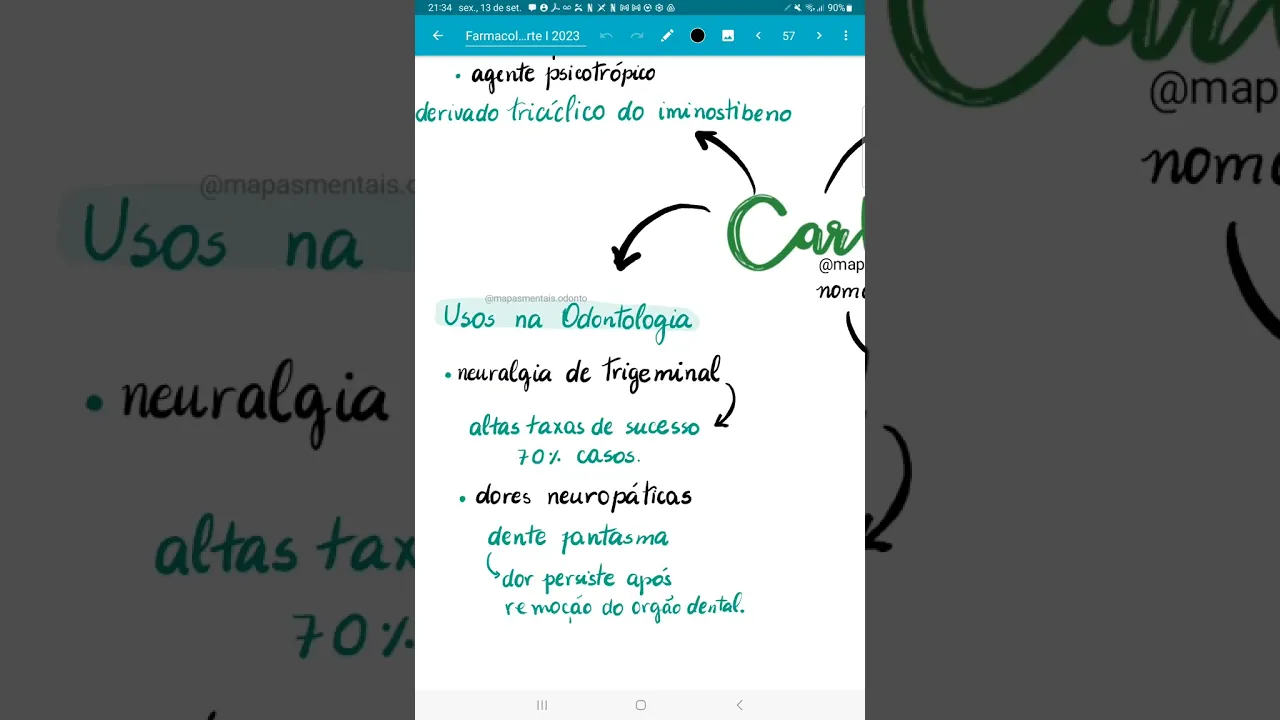 21:34 sex., 13 de set. 90%
Farmacol...rte I 2023 57
agente psicotrópico
derivado tricíclico do iminostibeno
Carb
@map
nome
@mapasmentais.odonto
Usos na Odontologia
• neuralgia de trigeminal
altas taxas de sucesso
70% casos.
• dores neuropáticas
dente fantasma
dor persiste após
remoção do orgão dental.
@mapasmentais.o
Usos na
• neuralgia
altas tax
70%
@map
nome